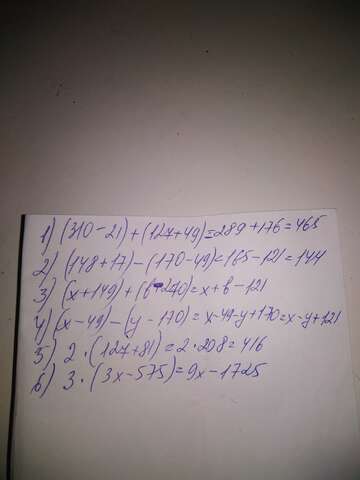 1) (310-21)+(127+49)=289+176=465
2) (148+17)-(170-49)=165-121=144
3) (x+149)+(b-270)=x+b-121
4) (x-49)-(y-170)=x-49-y+170=x-y+121
5) 2·(127+81)=2·208=416
6) 3·(3x-575)=9x-1725